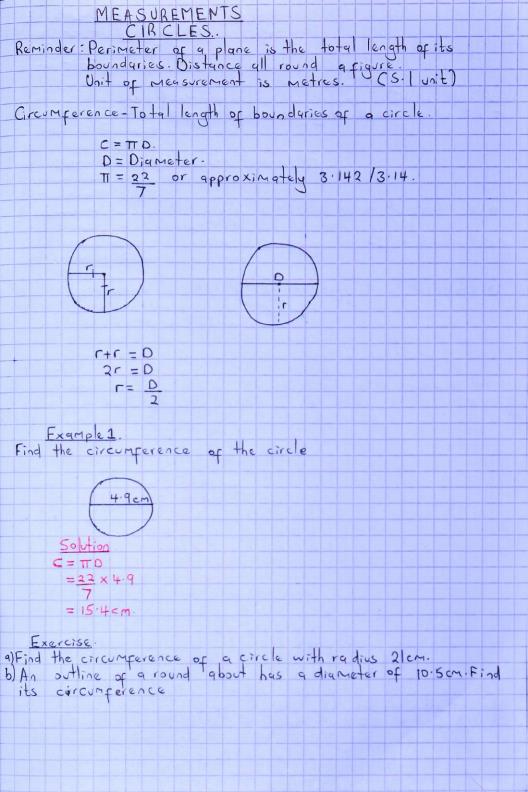 MEASUREMENTS
CIRCLES..
Reminder: Perimeter of a plane is the total length of its
boundaries. Distance all round a figure.
Unit of measurement is metres. (S.I unit)
Circumference - Total length of boundaries of a circle.
C = πD.
D = Diameter.
π = 22/7 or approximately 3.142 / 3.14.
r
r
D
r
r+r = D
2r = D
r = D/2
Example 1.
Find the circumference of the circle
4.9cm
Solution
C = πD
= 22/7 x 4.9
= 15.4cm.
Exercise.
a) Find the circumference of a circle with radius 21cm.
b) An outline of a round about has a diameter of 10.5cm. Find
its circumference